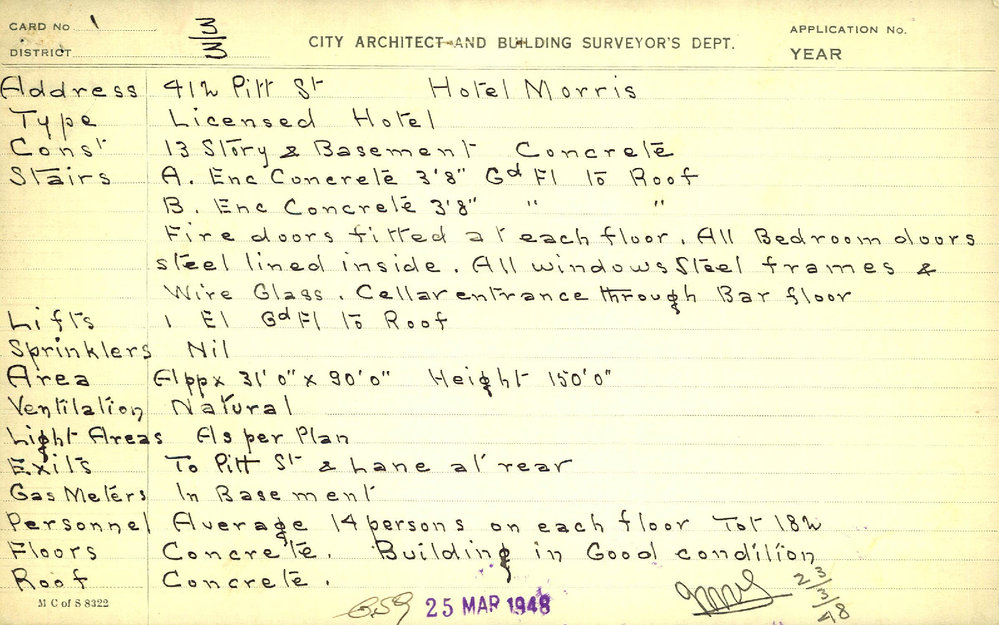 CARD No 1
DISTRICT 3/3
CITY ARCHITECT AND BUILDING SURVEYOR'S DEPT.
APPLICATION No.
YEAR
Address 412 Pitt St Hotel Morris
Type Licensed Hotel
Const 13 Story & Basement Concrete
Stairs A. Enc Concrete 3'8" Gd Fl to Roof
B. Enc Concrete 3'8" " "
Fire doors fitted at each floor. All Bedroom doors
steel lined inside. All windows Steel frames &
Wire Glass. Cellar entrance through Bar floor
Lifts 1 El Gd Fl to Roof
Sprinklers Nil
Area Appx 31'0" x 90'0" Height 150'0"
Ventilation Natural
Light Areas As per Plan
Exits To Pitt St & Lane at rear
Gas Meters In Basement
Personnel Average 14 persons on each floor Tot 182
Floors Concrete. Building in Good condition
Roof Concrete.
M C of S 8322
25 MAR 1948
2/3/48